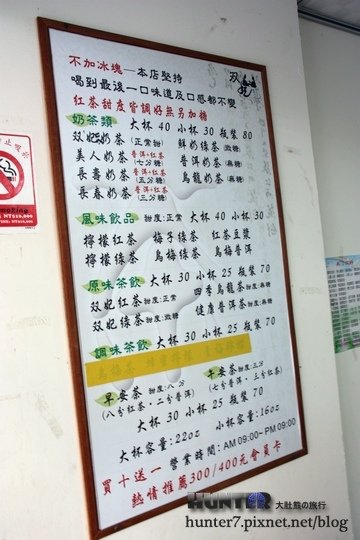 不加冰塊─本店堅持
双妃
喝到最後一口味道及口感都不變
紅茶甜度皆調好無另加糖
奶茶類 大杯 40 小杯 30 瓶裝 80
双妃奶茶(正常甜) 鮮奶綠茶(微糖)
美人奶茶(普洱+紅茶 七分糖) 普洱奶茶(無糖)
長壽奶茶(普洱+紅茶 五分糖) 烏龍奶茶(無糖)
長春奶茶(普洱+紅茶 三分糖)
風味飲品 甜度:正常 大杯 40 小杯 30
檸檬紅茶 梅子綠茶 紅茶豆漿
檸檬綠茶 烏梅綠茶 烏梅普洱
原味茶飲 大杯 30 小杯 25 瓶裝 70
双妃紅茶甜度:正常 四季烏龍茶甜度:無糖
双妃綠茶甜度:微糖 健康普洱茶甜度:無糖
調味茶飲 大杯 30 小杯 25 瓶裝 70
早安茶 甜度:八分 午安茶 甜度:三分
(八分紅茶、二分普洱) (七分普洱、三分紅茶)
大杯 30 小杯 25 瓶裝 70
大杯容量:22oz 小杯容量:16oz
買十送一 營業時間:AM 09:00~PM 09:00
熱情推薦300/400元會員卡
HUNTER 大肚熊の旅行
hunter7.pixnet.net/blog